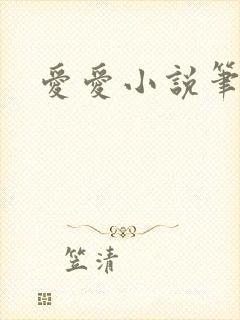 愛愛小說筆
笠清